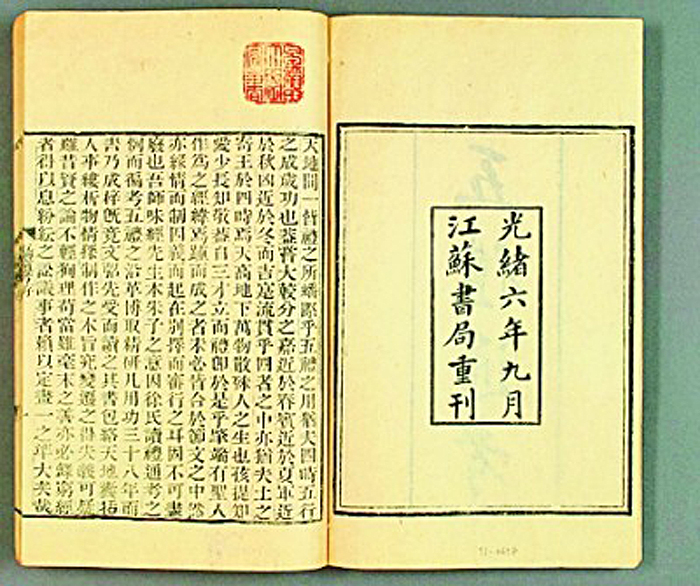 光緒六年九月
江蘇書局重刊
天地間一皆禮之所蟠際乎五禮之用猶夫四時五行
之成歲功也蓋嘗大較分之嘉近於春賓近於夏軍近
於秋凶近於冬而吉寔流貫乎四者之中亦猶夫土之
寄王於四時焉天高地下萬物散殊人之生也孩提知
愛少長知敬蓋自三才立而禮即於是乎肇端有聖人
作為之經緯焉而成之者本必皆合於節文之中然
亦緣情而制因義而起在別擇而審行之耳固不可盡
廢也吾師味經先生本朱子之意因徐氏讀禮通考之
例而徧考五禮之沿革博取精研凡用功三十八年而
書乃成梓既竟文弨先受而讀之其書包絡天地囊括
人事縷析物情探制作之本旨究變遷之得失義可嚴
雖昔賢之論不輕徇理苟當雖豪末之善亦必錄窮經
者得以息紛紜之訟議事者賴以定畫一之準大矣哉